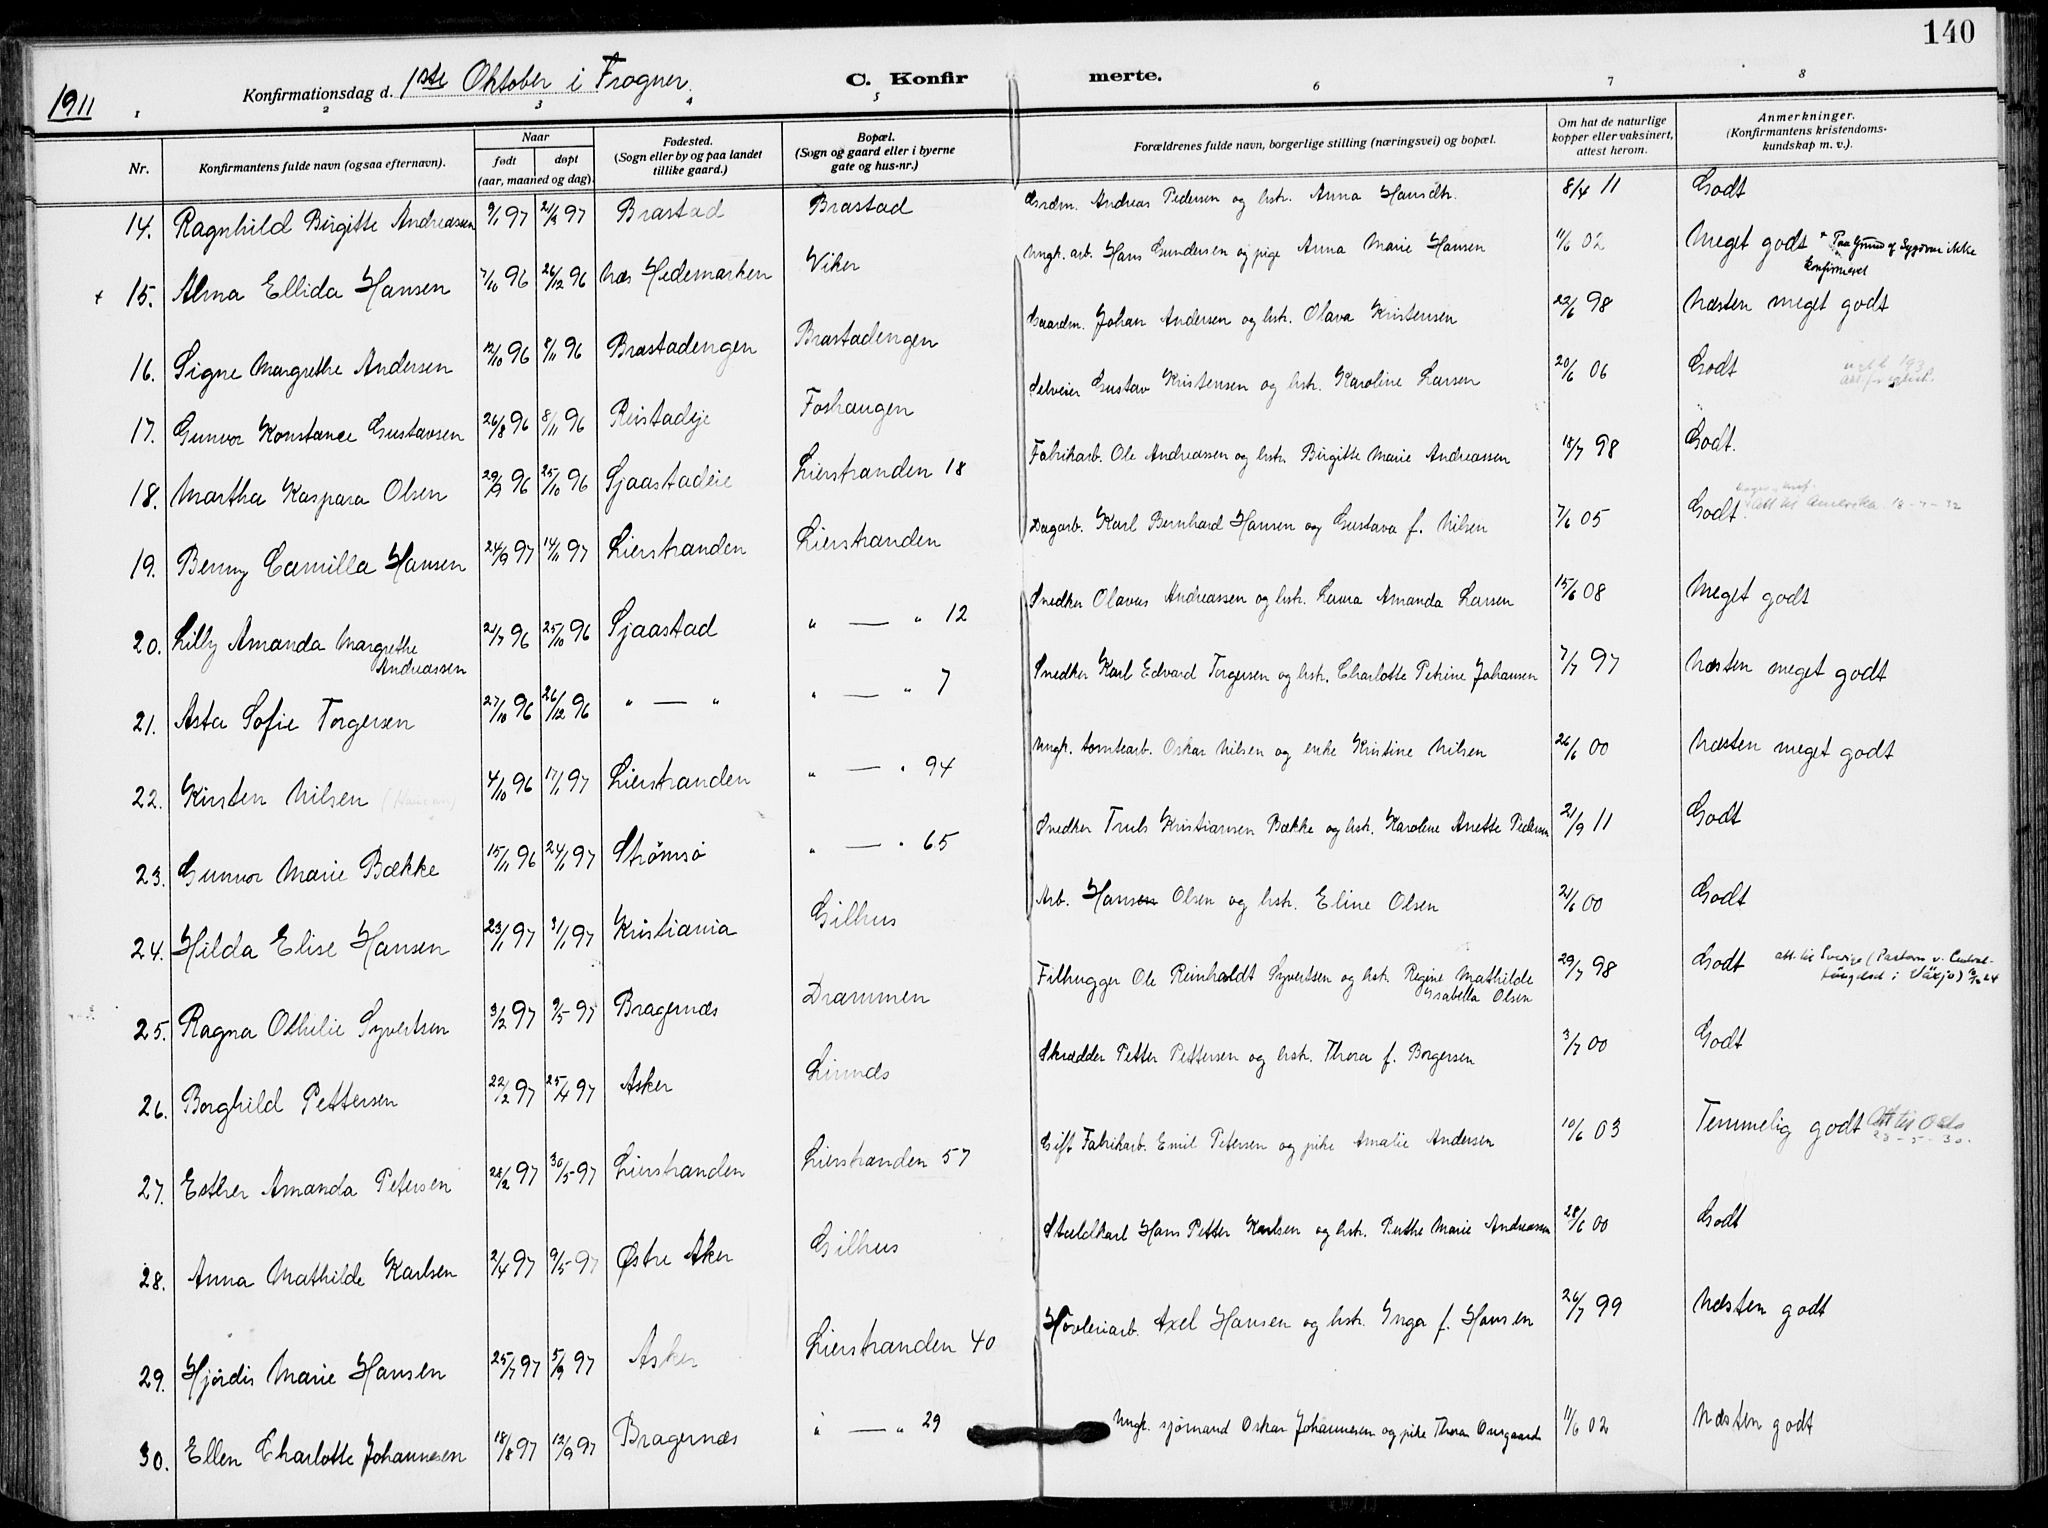 140
1911 Konfirmationsdag d. 1ste Oktober i Frogner. C. Konfir merte.
1 2 3 4 5 6 7 8
Nr. Konfirmantens fulde navn (ogsaa efternavn). Naar født døpt (aar, maaned og dag). Fødested. (Sogn eller by og paa landet tillike gaard.) Bopæl. (Sogn og gaard eller i byerne gate og hus-nr.) Forældrenes fulde navn, borgerlige stilling (næringsvei) og bopæl. Om hat de naturlige kopper eller vaksinert, attest herom. Anmerkninger. (Konfirmantens kristendomskundskap m. v.).
14. Ragnhild Birgitte Andreassen 9/1 97 21/3 97 Brastad Brastad Grdm. Andreas Pedersen og hstr. Anna Hansdtr. 8/4 11 Godt
+ 15. Alma Ellida Hansen 7/10 96 26/12 96 Næs Hedemarken Viker Ungk. arb. Hans Gundersen og pige Anna Marie Hansen 11/6 02 Meget godt + Paa Grund af Sygdom ikke konfirmeret
16. Signe Margrethe Andersen 12/10 96 8/11 96 Brastadengen Brastadengen Gaardm. Johan Andersen og hstr. Olava Kristensen 22/6 98 Næsten meget godt
17. Gunvor Konstance Gustavsen 26/8 96 8/11 96 Reistadeje Foshaugen Selveier Gustav Kristensen og hstr. Karoline Larsen 20/6 06 Godt
18. Martha Kaspara Olsen 29/9 96 25/10 96 Sjaastadeie Lierstranden 18 Fabrikarb. Ole Andreassen og hstr. Birgitte Marie Andreassen 18/7 98 Godt.
19. Benny Camilla Hansen 24/9 97 14/11 97 Lierstranden Lierstranden Dagarb. Karl Bernhard Hansen og Gustava f. Nilsen 7/6 05 Godt. Att til Amerika
20. Lilly Amanda Margrethe Andreassen 21/7 96 25/10 96 Sjaastad " — " 12 Snedker Olavus Andreassen og hstr. Laura Amanda Larsen 15/6 08 Meget godt
21. Asta Sofie Torgersen 27/10 96 26/12 96 " — " " — " 7 Snedker Karl Edvard Torgersen og hstr. Charlotte Petrine Johansen 7/7 97 Næsten meget godt
22. Kirsten Nilsen 4/10 96 17/1 97 Lierstranden " — " 94 Ungk. tomtearb. Oskar Nilsen og enke Kristine Nilsen 26/6 00 Næsten meget godt
23. Gunvor Marie Bække 15/11 96 24/1 97 Strømsø " — " 65 Snedker Truls Kristiansen Bække og hstr. Karoline Anette Pedersen 21/9 11 Godt
24. Hilda Elise Hansen 23/1 97 31/1 97 Kristiania Gilhus Arb. Hansen Olsen og hstr. Eline Olsen 21/6 00 Godt
25. Ragna Othilie Syvertsen 3/2 97 9/5 97 Bragernæs Drammen Filhugger Ole Reinholdt Syvertsen og hstr. Regine Mathilde Ysabella Olsen 29/7 98 Godt att. til Sverige (Pastorn v. Centralfängelset i Växjö)
26. Borghild Pettersen 22/2 97 25/4 97 Asker Linnes Skrædder Petter Pettersen og hstr. Thora f. Borgersen 3/7 00 Godt
27. Esther Amanda Petersen 28/2 97 30/5 97 Lierstranden Lierstranden 57 Gift Fabrikarb. Emil Petersen og pike Amalie Andersen 10/6 03 Temmelig godt Att til Oslo 23-5-30.
28. Anna Mathilde Karlsen 2/4 97 9/5 97 Østre Aker Gilhus Staldkarl Hans Petter Karlsen og hstr. Berthe Marie Andreassen 28/6 00 Godt
29. Hjørdis Marie Hansen 25/7 97 5/9 97 Asker Lierstranden 40 Høvleriarb. Axel Hansen og hstr. Ynga f. Hansen 26/7 99 Næsten godt
30. Ellen Charlotte Johannesen 18/8 97 12/9 97 Bragernæs " — " 29 Ungk. sjømand Oskar Johannesen og pike Thora 11/6 02 Næsten godt